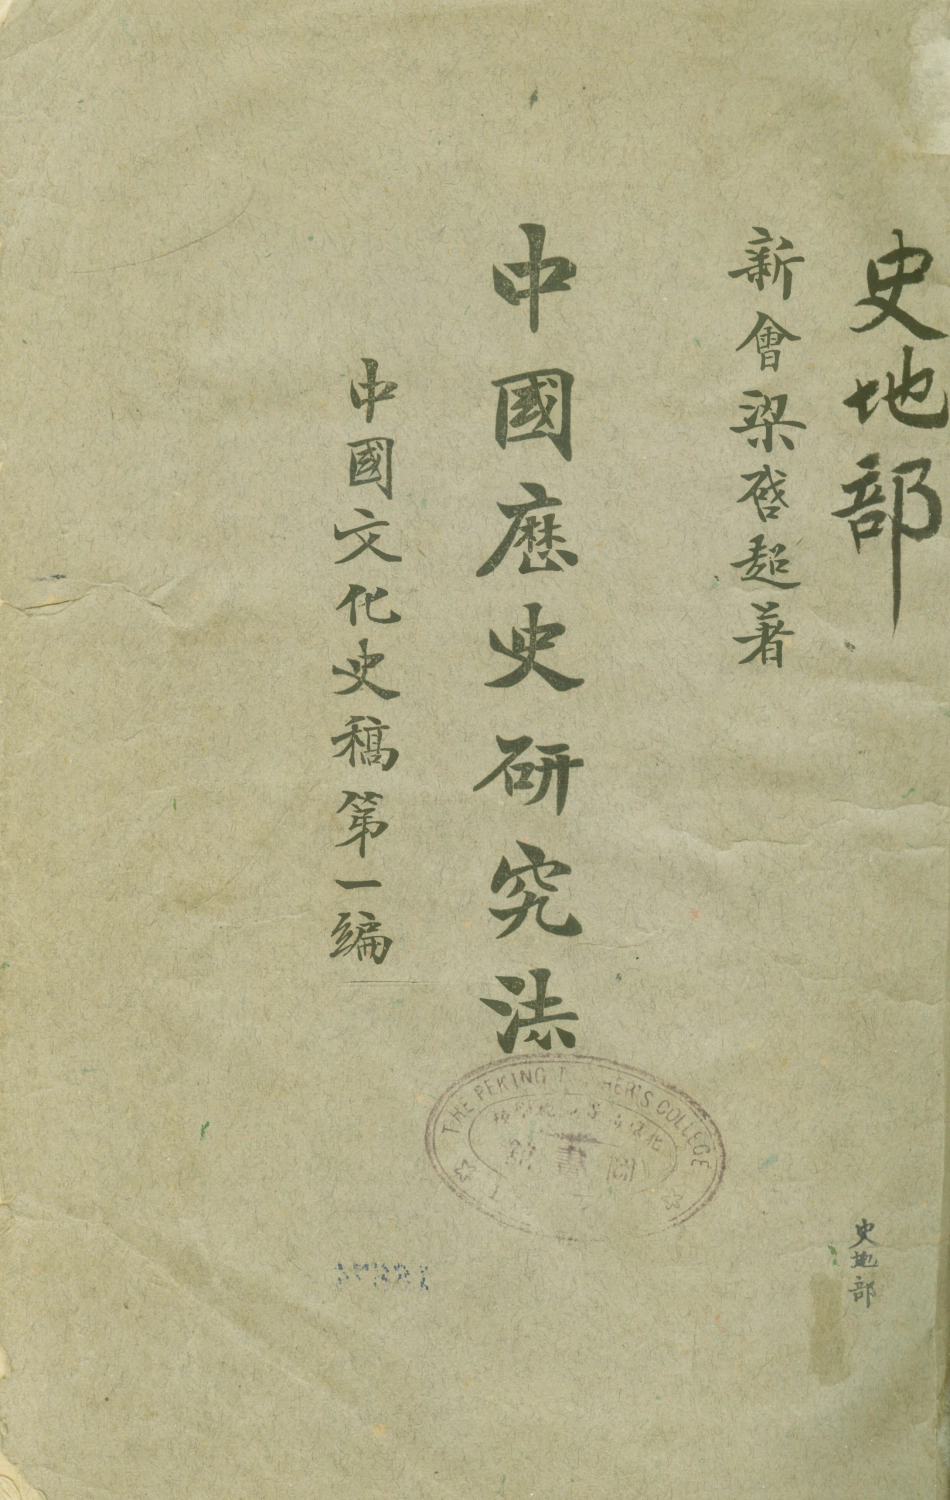 史地部
新會梁啓超著
中國歷史研究法
中國文化史稿第一編
THE PEKING TEACHER'S COLLEGE
圖書館
史地部